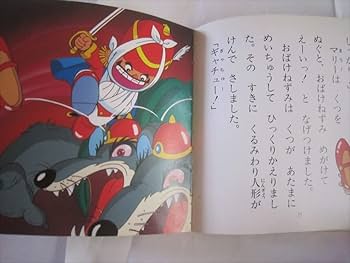 マリーは くつを
ぬぐと、おばけねずみ めがけて
えーいっ! と なげつけました。
おばけねずみは くつが あたまに
めいちゅうして ひっくりかえりまし
た。その すきに くるみわり人形が
けんで さしました。
「ギャチュー!」